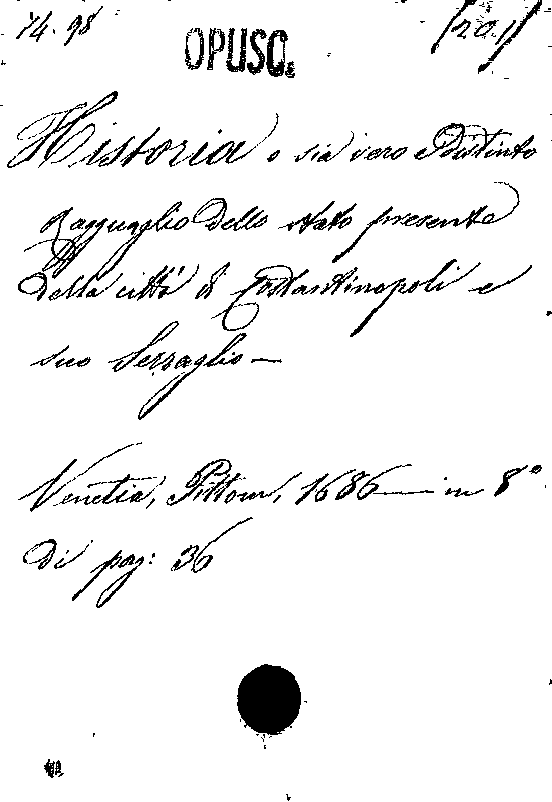 74.98
OPUSC.
[20.1]
Historia o sia vero e Distinto
Ragguaglio Dello stato presente
Della città di Costantinopoli e
suo Serraglio —
Venetia, Pittoni, 1686 — in 8°
Di pag: 36